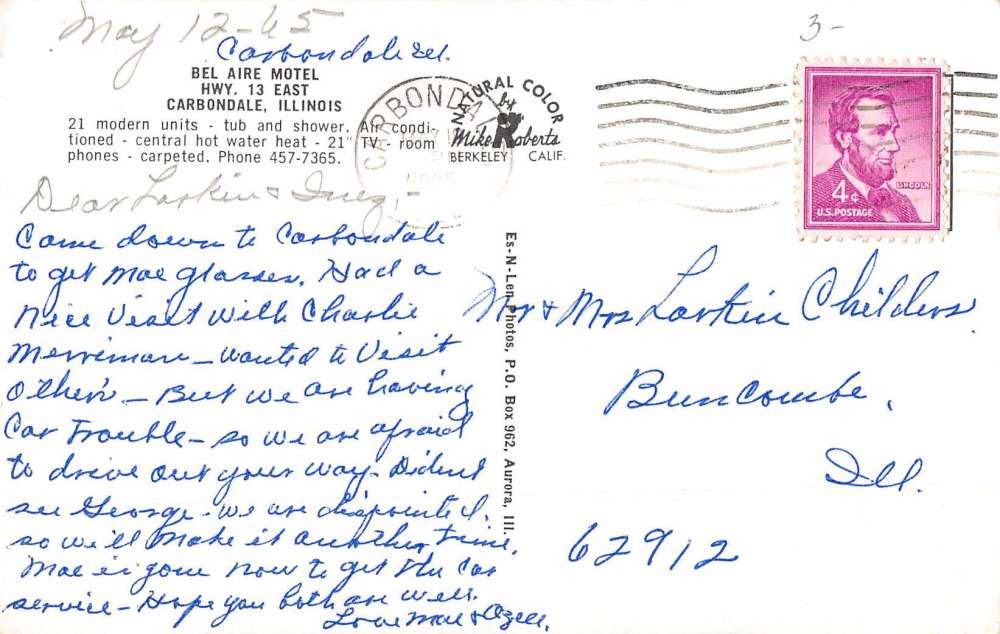 May 12-65
3-
Carbondale Ill.
BEL AIRE MOTEL
HWY. 13 EAST
CARBONDALE, ILLINOIS
21 modern units - tub and shower. Air condi-
tioned - central hot water heat - 21" TV - room
phones - carpeted. Phone 457-7365.
NATURAL COLOR
by
Mike Roberts
BERKELEY CALIF.
CARBONDA
4¢
LINCOLN
U.S. POSTAGE
Dear Larkin & Inez,-
Came down to Carbondale
to get Mae glasses. Had a
Nice Visit with Charlie
Merriman - wanted to Visit
Others - But we are having
Car Trouble - so we are afraid
to drive out your way. Dident
see George - we are disapointed.
so we'll make it another time.
Mae is gone now to get the Car
service - Hope you both are well.
Love Mae & Ozell.
Es-N-Len Photos, P.O. Box 962, Aurora, Ill.
Mr & Mrs Larkin Childers
Buncombe,
Ill.
62912